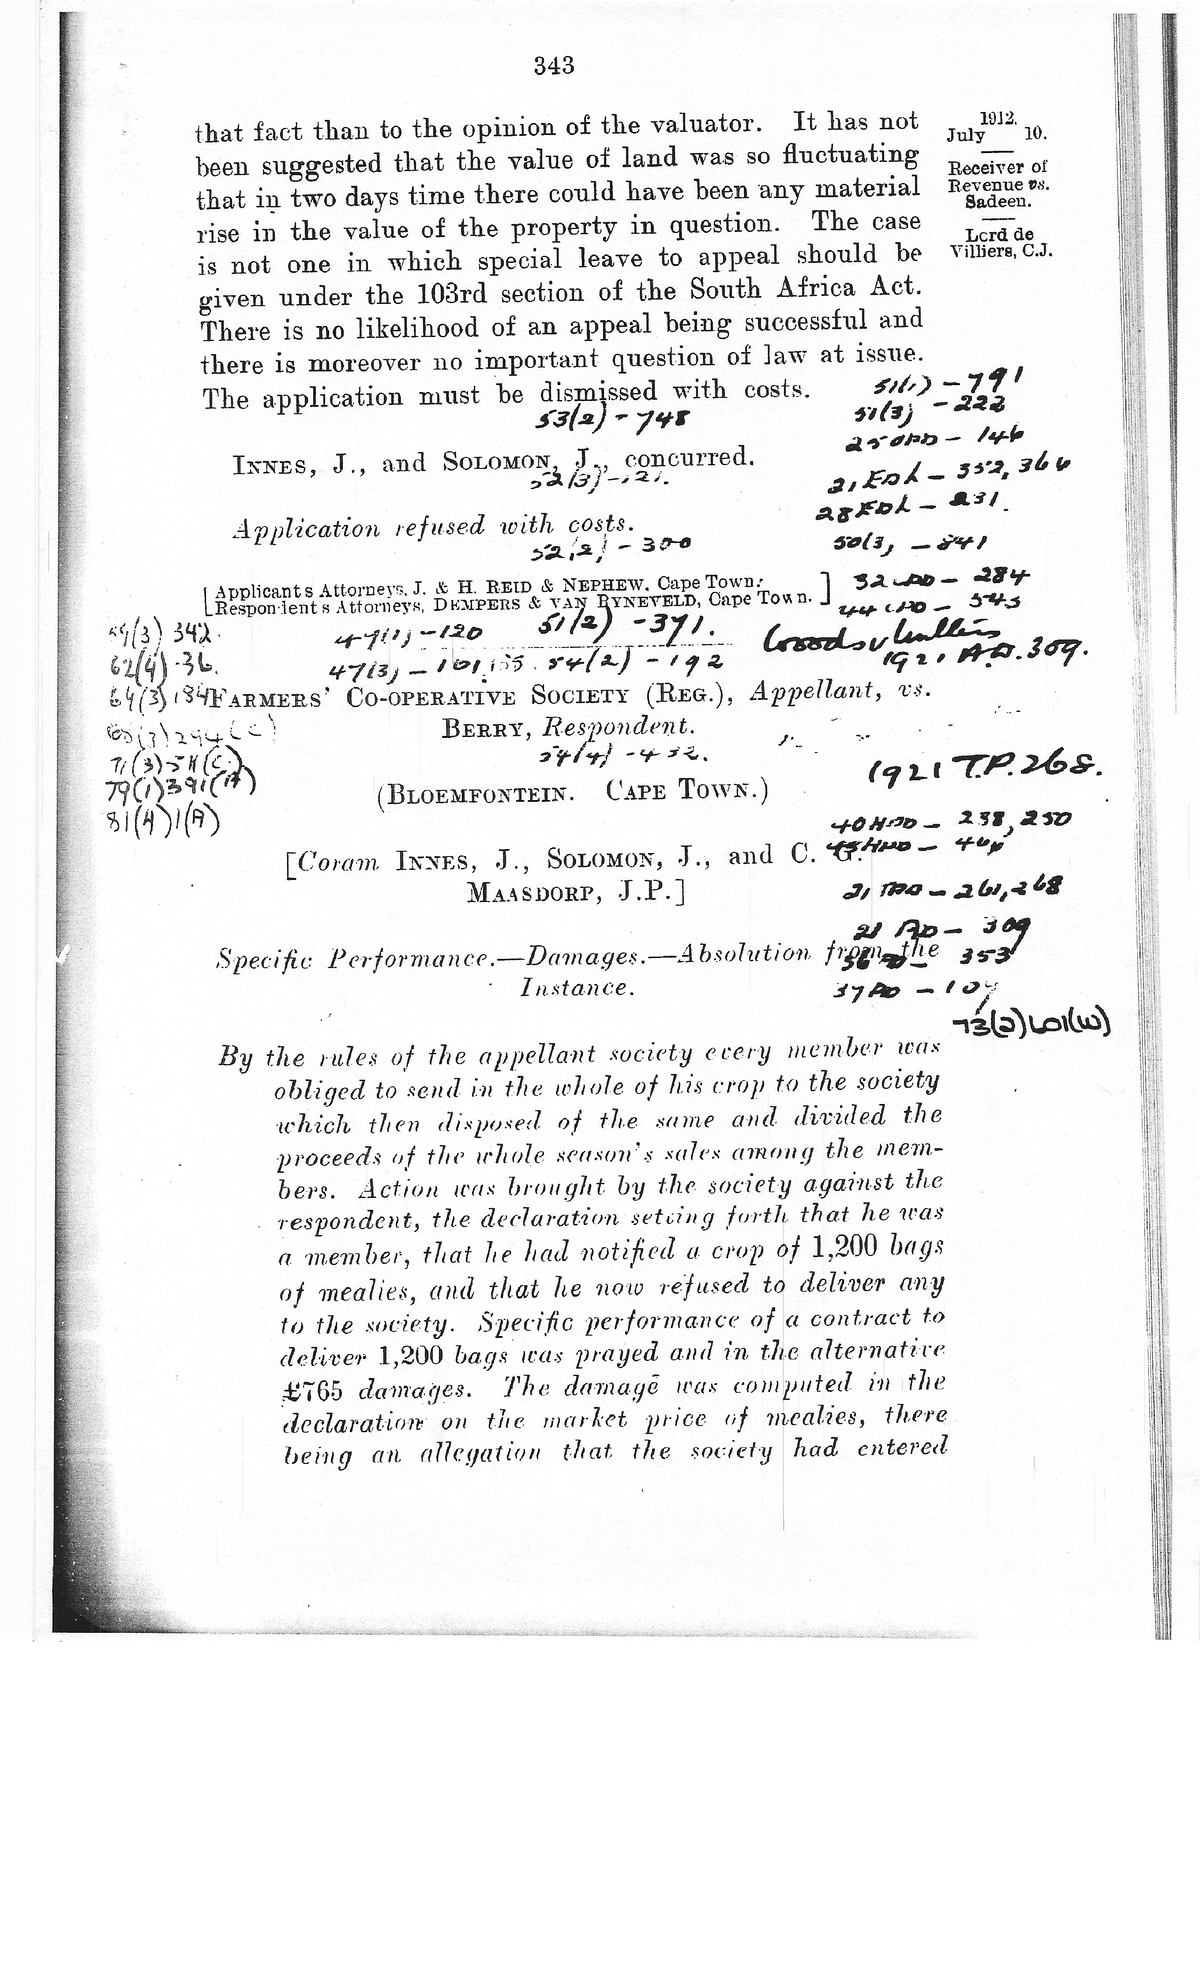 343
that fact than to the opinion of the valuator. It has not
been suggested that the value of land was so fluctuating
that in two days time there could have been any material
rise in the value of the property in question. The case
is not one in which special leave to appeal should be
given under the 103rd section of the South Africa Act.
There is no likelihood of an appeal being successful and
there is moreover no important question of law at issue.
The application must be dismissed with costs.
1912.
July 10.
Receiver of
Revenue vs.
Sadeen.
Lord de
Villiers, C.J.
51(1) - 791
53(2) - 748
51(3) - 222
25 - 146
INNES, J., and SOLOMON, J., concurred.
52(3)
21 EDL - 352, 366
28 EDL - 231.
Application refused with costs.
52(2) - 300
50(3) - 841
[Applicants Attorneys, J. & H. REID & NEPHEW, Cape Town.
Respondent's Attorneys, DEMPERS & VAN RYNEVELD, Cape Town.]
32 - 284
44 - 543
59(3) 342.
47(1) - 120
51(2) - 371.
Woods v
1921 A.D. 309.
62(4) 36.
47(3) - 101,
54(2) - 192
64(3) 184
FARMERS' CO-OPERATIVE SOCIETY (REG.), Appellant, vs.
BERRY, Respondent.
68(3) 294(C)
54(4) - 432.
71(3) 511(C)
79(1) 391(A)
81(4) 1(A)
1921 T.P. 268.
(BLOEMFONTEIN. CAPE TOWN.)
40 - 238, 250
[Coram INNES, J., SOLOMON, J., and C. G.
MAASDORP, J.P.]
21 TPD - 261, 268
21 AD - 309
Specific Performance.—Damages.—Absolution from the
Instance.
36 AD - 353
37 AD - 10
73(2) 601(W)
By the rules of the appellant society every member was
obliged to send in the whole of his crop to the society
which then disposed of the same and divided the
proceeds of the whole season's sales among the mem-
bers. Action was brought by the society against the
respondent, the declaration setting forth that he was
a member, that he had notified a crop of 1,200 bags
of mealies, and that he now refused to deliver any
to the society. Specific performance of a contract to
deliver 1,200 bags was prayed and in the alternative
£765 damages. The damage was computed in the
declaration on the market price of mealies, there
being an allegation that the society had entered